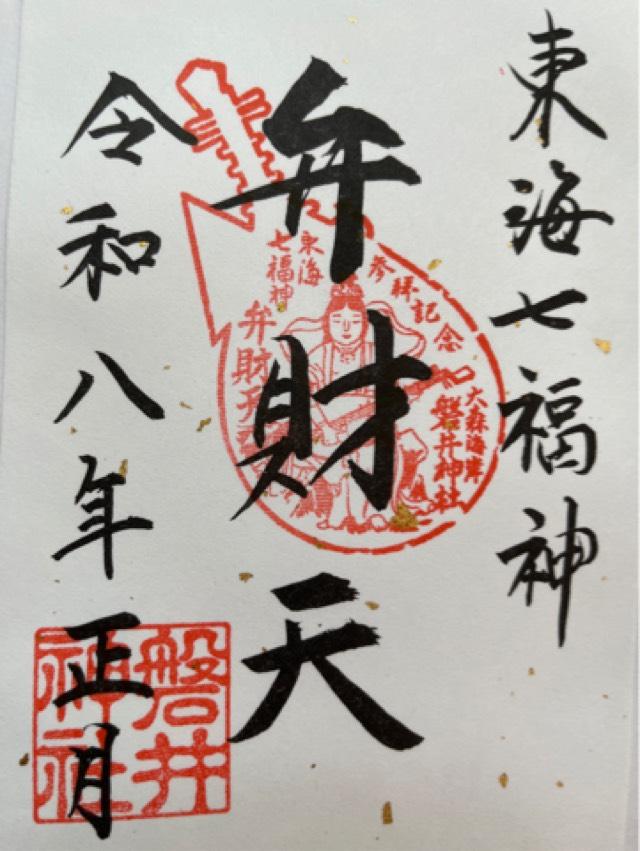 東海七福神
弁財天
令和八年正月
東海
七福神
弁財天
参拝記念
大森海岸
磐井神社
磐井
神社